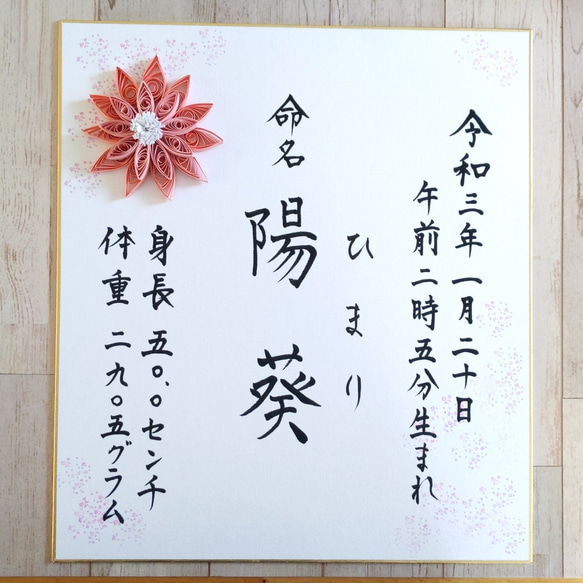 令和三年一月二十日
午前二時五分生まれ
命名
陽葵
ひまり
身長五〇.〇センチ
体重二九〇五グラム